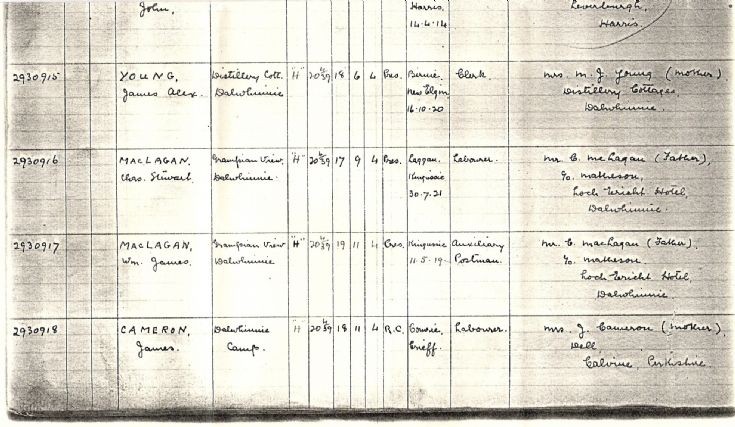 John. Harris. Leverburgh,
14.4.14 Harris.
2930915 YOUNG, Distillery Cott. "H" 20 4/39 18 6 4 Pres. Birnie Clerk. Mrs. M. J. Young (Mother)
James Alex. Dalwhinnie New Elgin Distillery Cottages,
16.10.20 Dalwhinnie.
2930916 MACLAGAN, Grampian View, "H" 20 4/39 17 9 4 Pres. Laggan, Labourer. Mr. C. McLagan (Father),
Chas. Stewart. Dalwhinnie. Kingussie c/o Matheson,
30.7.21 Loch Ericht Hotel,
Dalwhinnie.
2930917 MACLAGAN, Grampian View "H" 20 4/39 19 11 4 Pres. Kingussie Auxiliary Mr. C. MacLagan (Father),
Wm. James. Dalwhinnie 11.5.19. Postman. c/o Matheson,
Loch Ericht Hotel,
Dalwhinnie
2930918 CAMERON, Dalwhinnie H 20 4/39 18 11 4 R.C. Labourer. Mrs. J. Cameron (Mother),
James. Camp. Crieff. Dell
Calvine, Perkshire.